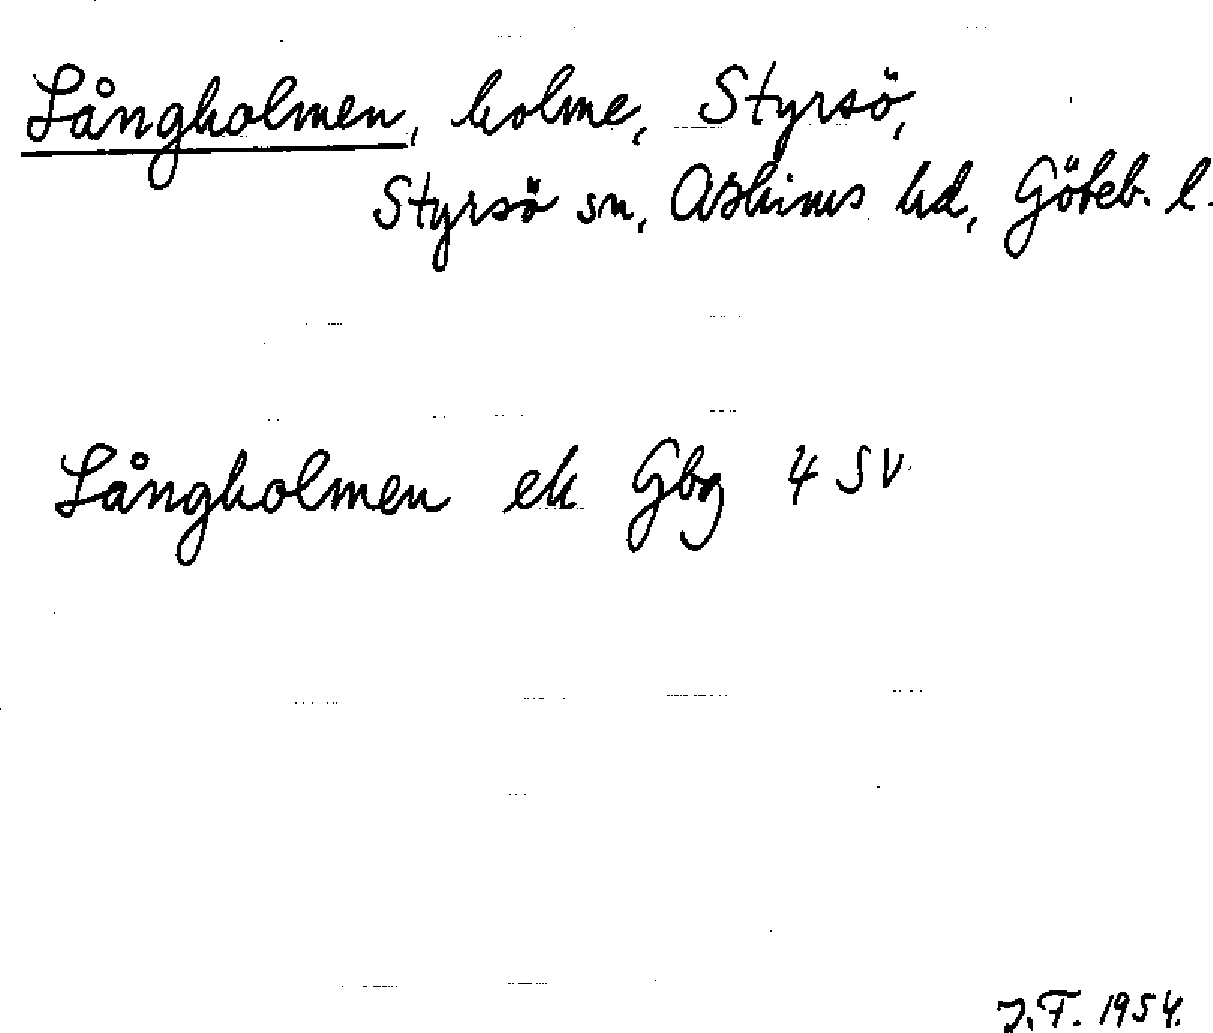 Långholmen, holme, Styrsö,
Styrsö sn, Askims hd, Göteb. l.
Långholmen ek Gbg 4 SV
J.F. 1954.